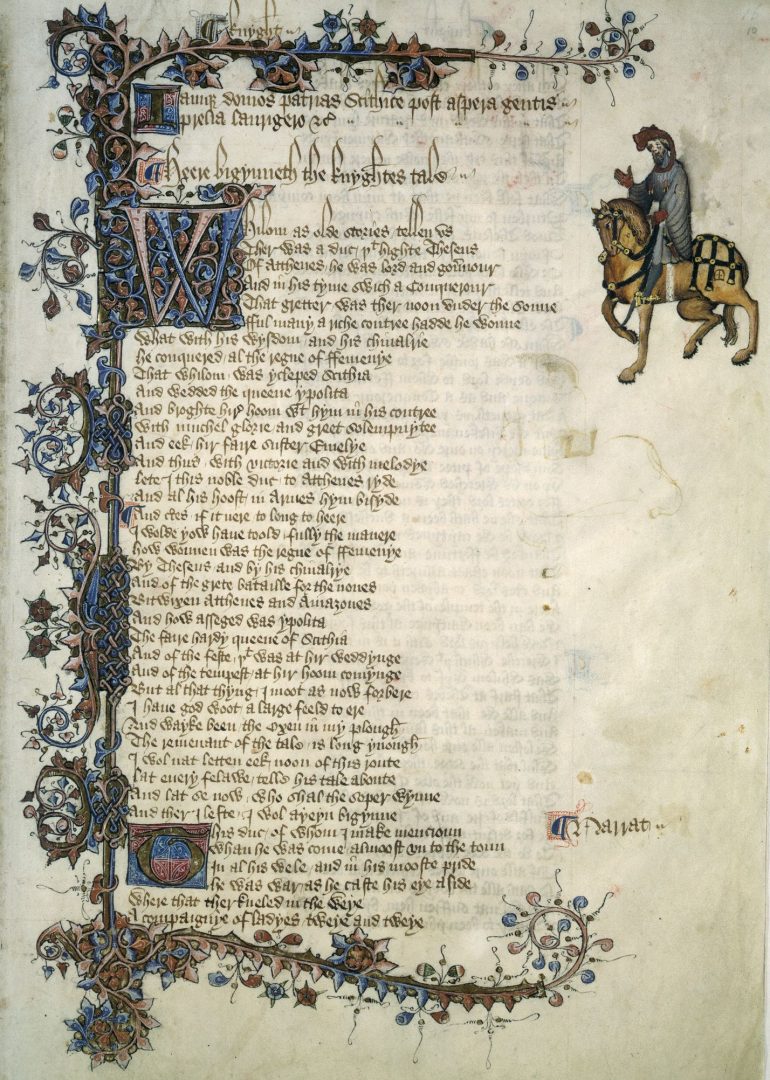 Knyght
Iamq; domos patrias Scithice post aspera gentis
prelia laurigero &c
Heere bigynneth the knyghtes tale
Whilom as olde stories tellen vs
Ther was a duc, þt highte Theseus
Of Atthenes he was lord and gouernour
And in his tyme swich a Conquerour
That gretter was ther noon vnder the sonne
fful many a riche contree hadde he wonne
What with his wysdom and his chiualrie
He conquered, al the regne of ffemenye
That whilom was ycleped Scithia
And wedded the queene ypolita
And broghte hire hoom wt hym in his contree
With muchel glorie and greet solempnytee
And eek hir faire suster Emelye
And thus with victorie and with melodye
Lete I this noble duc to Atthenes ryde
And al his hoost in Armes hym bisyde
And certes if it nere to long to heere
I wolde yow haue toold fully the manere
How wonnen was the regne of ffemenye
By Theseus and by his chiualrye
And of the grete bataille for the nones
Bitwixen Atthenes and Amazones
And how asseged was ypolita
The faire hardy queene of Scithia
And of the feste, þt was at hir weddynge
And of the tempest at hir hoom comynge
But al that thyng, I moot as now forbere
I haue god woot a large feeld to ere
And wayke been the Oxen in my plough
The remenant of the tale is long ynough
I wol nat letten eek noon of this route
Lat euery felawe telle his tale aboute
And lat se now who shal the soper wynne
And ther I lefte, I wol ayeyn bigynne
This duc, of whom I make mencioun
Narrat
Whan he was come almoost vn to the toun
In al his wele and in his mooste pride
He was war as he caste his eye aside
Where that ther kneled in the weye
A compaignye of ladyes tweye and tweye